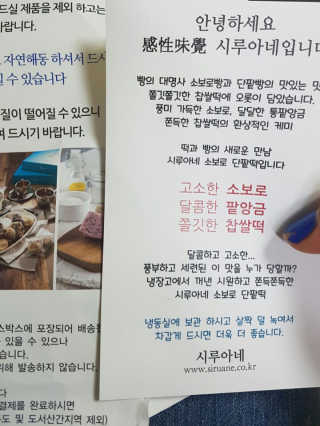 드실 제품을 제외 하고는
바랍니다.
자연해동 하셔서 드시
실 수 있습니다
질이 떨어질 수 있으니
여 드시기 바랍니다.
스박스에 포장되어 배송
 있을 수 있으나
습니다.
위해 발송하지 않습니다.
다
결제를 완료하시면
도 및 도서산간지역 제외)
안녕하세요
感性味覺 시루아네입니다
빵의 대명사 소보로빵과 단팥빵의 맛있는 맛
쫄깃쫄깃한 찹쌀떡에 오롯이 담았습니다.
풍미 가득한 소보로, 달달한 통팥앙금
쫀득한 찹쌀떡의 환상적인 케미
떡과 빵의 새로운 만남
시루아네 소보로 단팥떡입니다
고소한 소보로
달콤한 팥앙금
쫄깃한 찹쌀떡
달콤하고 고소한...
풍부하고 세련된 이 맛을 누가 당할까?
냉장고에서 꺼낸 시원하고 쫀득쫀득한
시루아네 소보로 단팥떡
냉동실에 보관 하시고 살짝 덜 녹여서
차갑게 드시면 더욱 더 좋습니다.
시루아네
www.siruane.co.kr